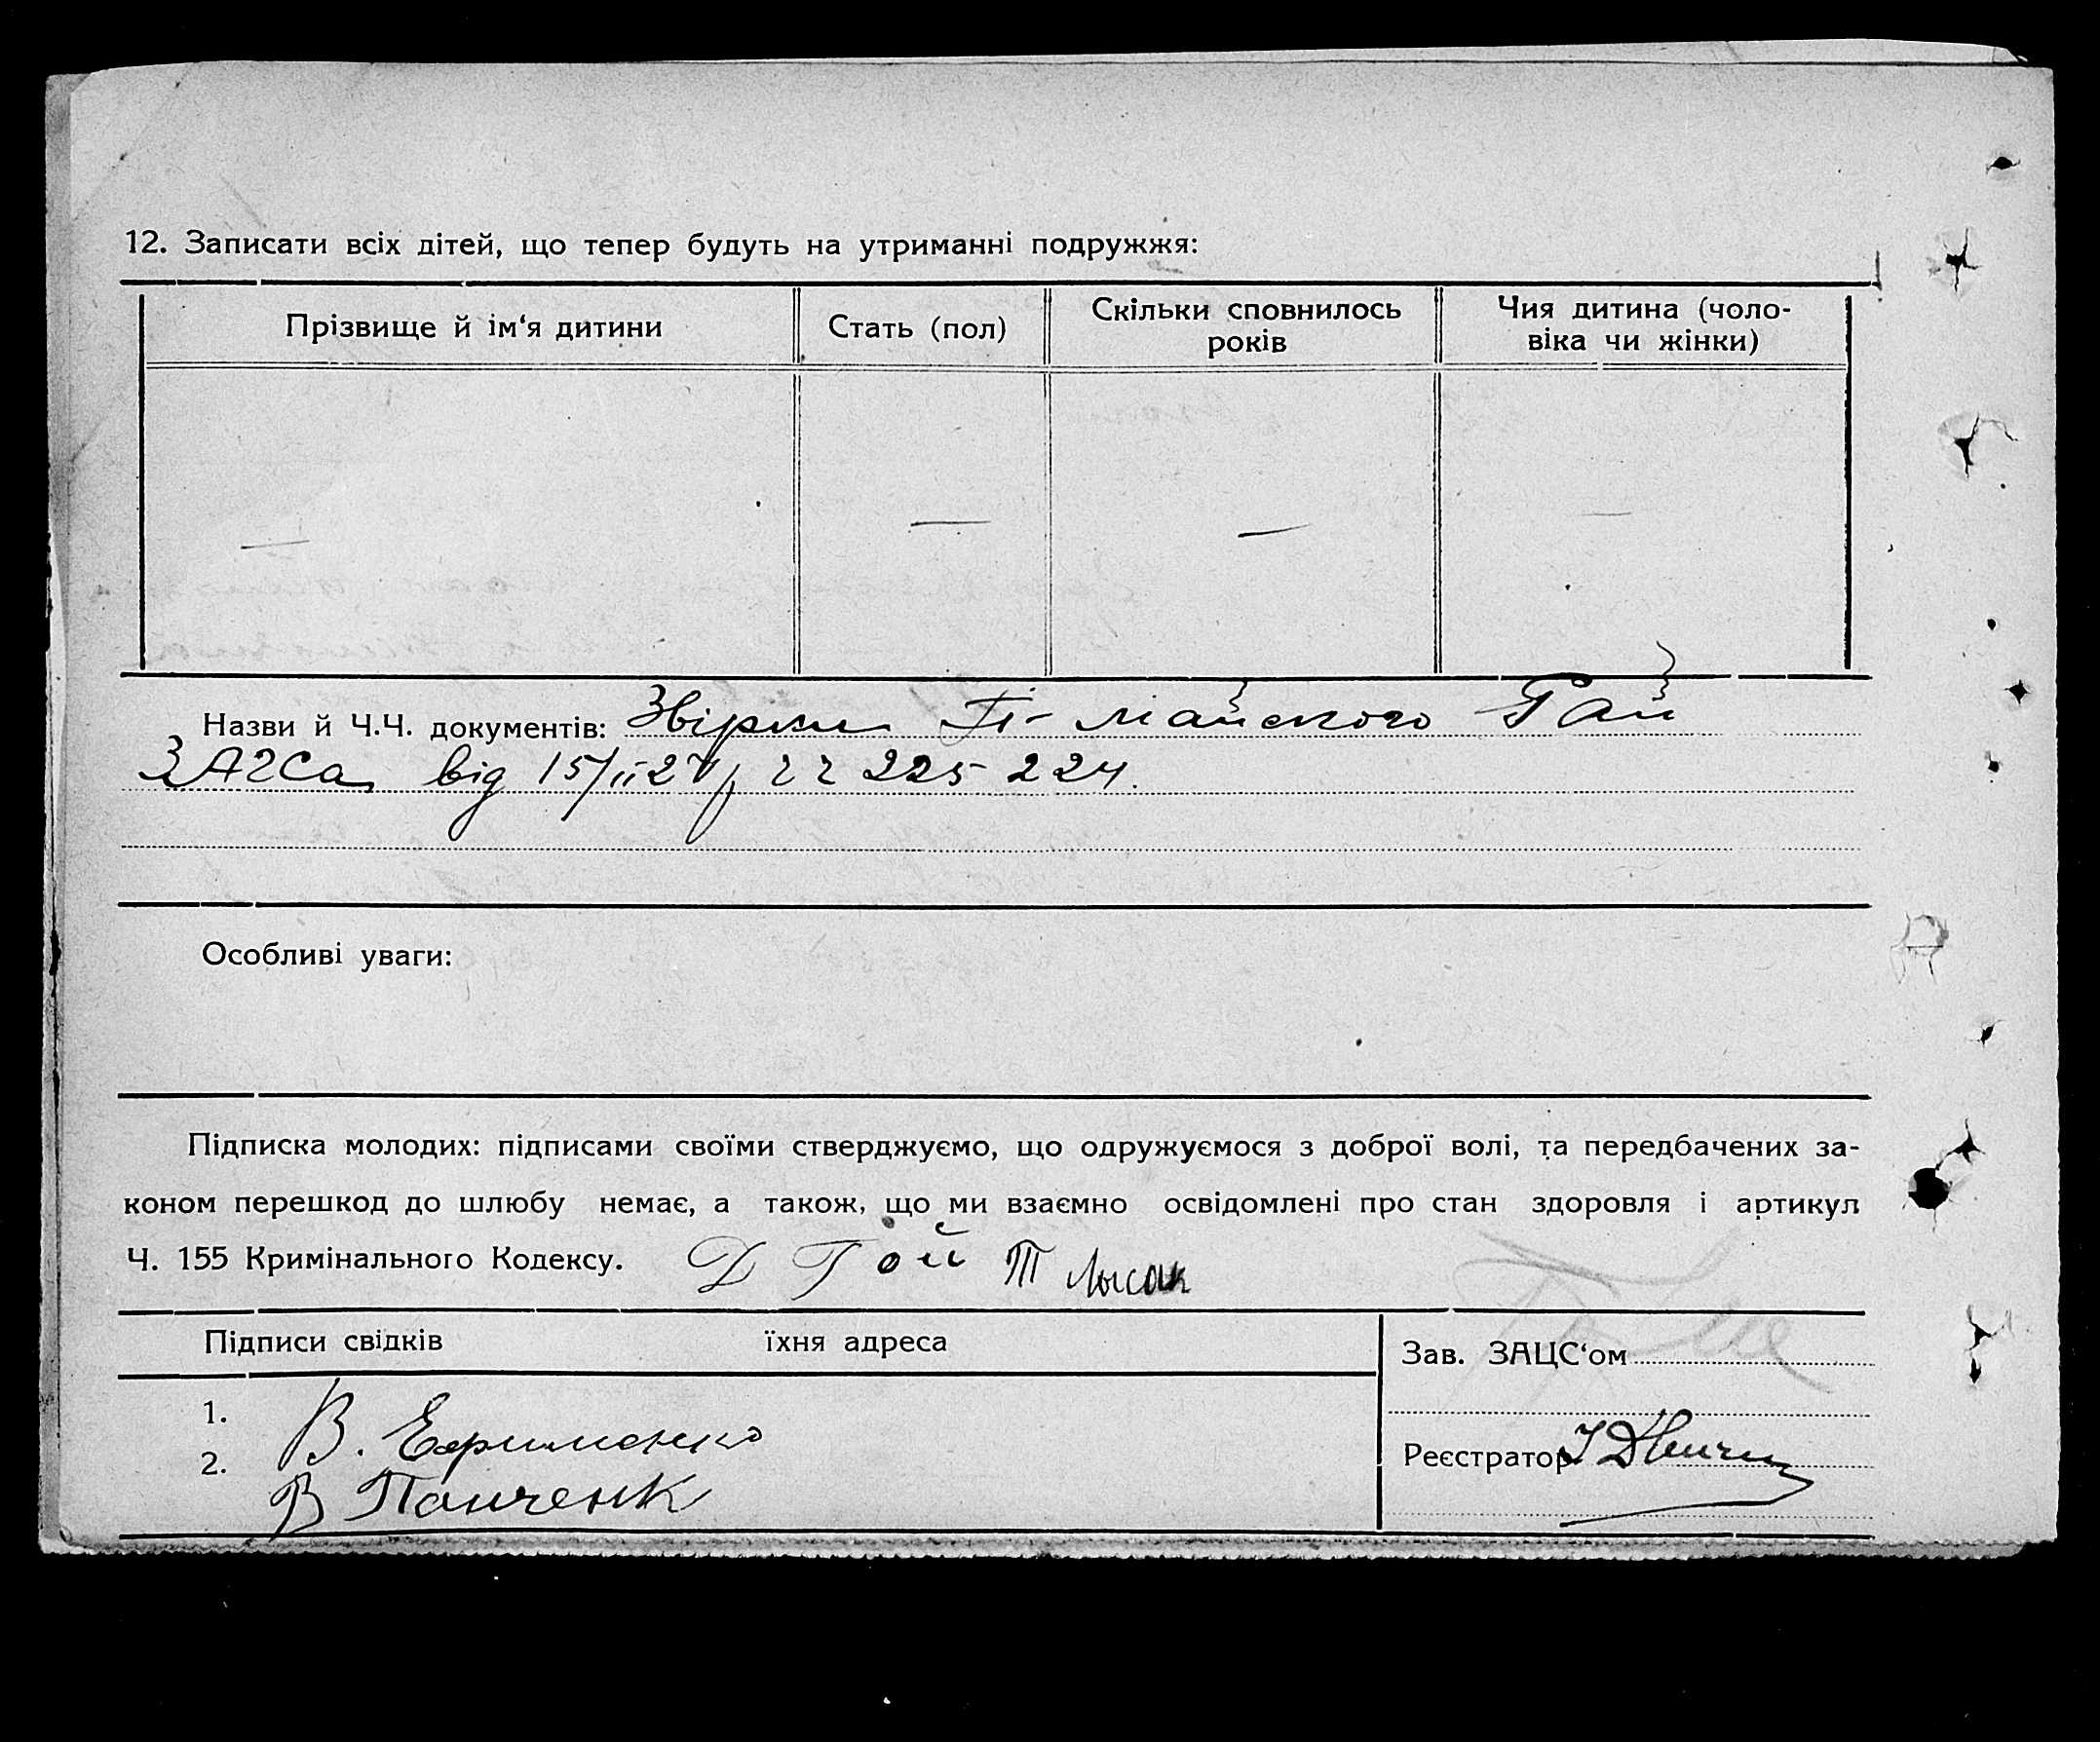 12. Записати всіх дітей, що тепер будуть на утриманні подружжя:
Прізвище й ім‘я дитини
Стать (пол)
Скільки сповнилось
років
Чия дитина (чоло-
віка чи жінки)
— — — —
Назви й Ч.Ч. документів: Звірки майского Рай
ЗАГСа від 15/ІІ 225 224.
Особливі уваги:
Підписка молодих: підписами своїми стверджуємо, що одружуємося з доброї волі, та передбачених за-
коном перешкод до шлюбу немає, а також, що ми взаємно освідомлені про стан здоровля і артикул
Ч. 155 Кримінального Кодексу. Д Гой Т Лысак
Підписи свідків їхня адреса
Зав. ЗАЦС‘ом
1. В. Ефименко
2. В Панченк
Реєстратор